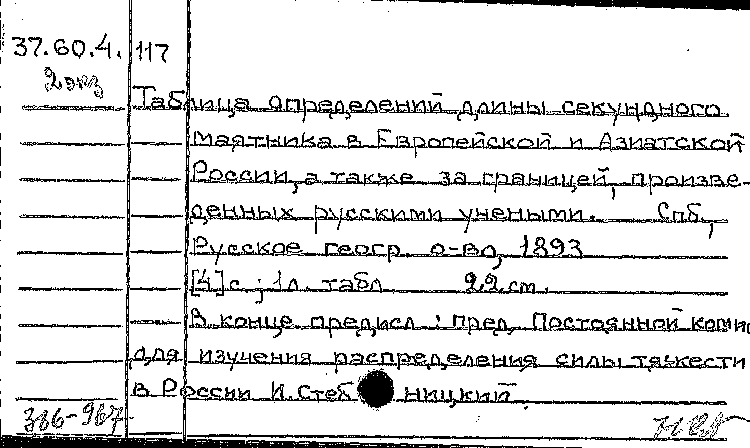 37.60.4. 117
2 экз
Таблица определений длины секундного
маятника в Европейской и Азиатской
России, а также за границей, произве-
денных русскими учеными. Спб.,
Русское геогр. о-во, 1893
[4] с.; 1 л. табл 22 см.
В конце предисл: пред. Постоянной комис
для изучения распределения силы тяжести
в России И. Стеб ницкий.
386-967